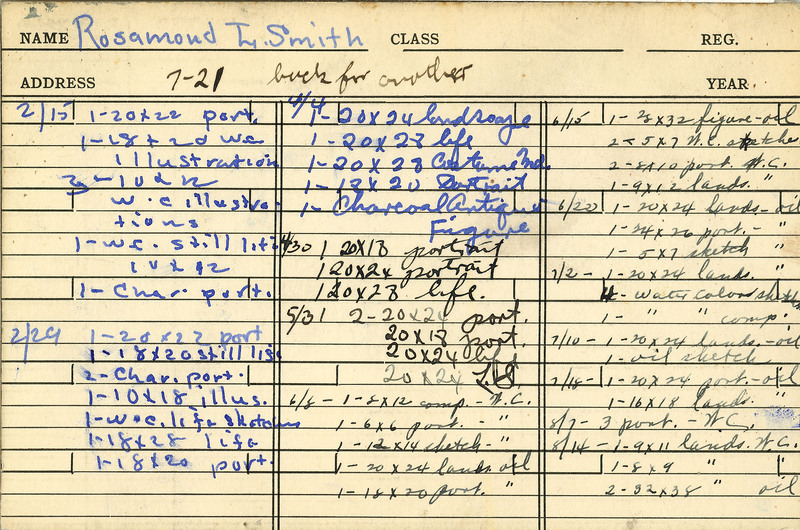 NAME Rosamond L. Smith CLASS REG.
ADDRESS 7-21 back for another YEAR
2/15 1-20x22 port.
1-18x20 w.c.
Illustration
3-10x12
w.c illustra-
tions
1-w.c. still life
10x12
1-Char. port.
2/29 1-20x22 port
1-18x20 still life
2-Char. port.
1-10x18 illus.
1-w.c. life sketches
1-18x28 life
1-18x20 port.
4/4 1-20x24 landscape
1-20x28 life
1-20x28 Costume Md.
1-18x20 Portrait
1-Charcoal Antique
Figure
4/30 1 20x18 portrait
1 20x24 portrait
1 20x28 life.
5/31 2-20x24 port.
20x18 port.
20x24 life
20x24 L.S.
6/8-1-8x12 comp.-W.C.
1-6x6 port. - "
1-12x14 sketch- "
1-20x24 lands. oil
1-18x20 port. "
6/15 1-28x32 figure-oil
2-5x7 W.C. sketches
2-8x10 port. W.C.
1-9x12 lands. "
6/22 1-20x24 lands-oil
1-24x26 port.- "
1-5x7 sketch "
7/2-1-20x24 lands. "
4-water colors sketch
1- " " comp.
7/10-1-20x24 lands.-oil
1-oil sketch
7/18-1-20x24 port.-oil
1-16x18 lands. "
8/7-3 port.-W.C.
8/14-1-9x11 lands. W.C.
1-8x9 " "
2-32x38 " oil